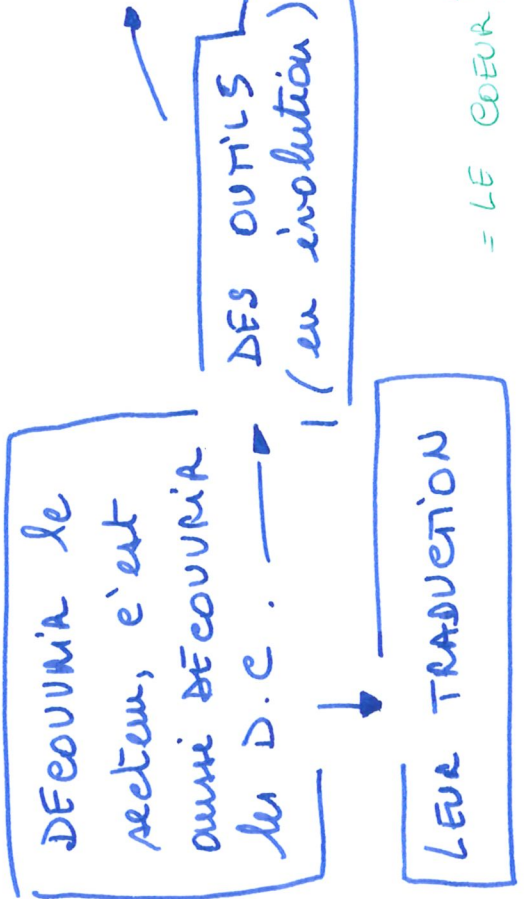 DÉCOUVRIR le
secteur, c'est
aussi DÉCOUVRIR
les D.C.
DES OUTILS
(en évolution)
LEUR TRADUCTION
= LE COEUR